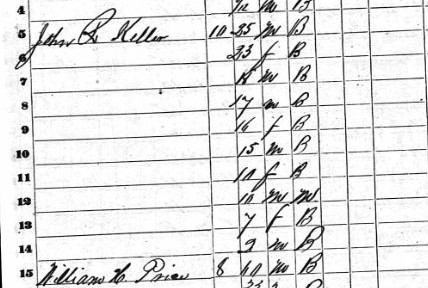 4 m B
5 John R Keller 10 25 m B
6 23 f B
7 m B
8 17 m B
9 16 f B
10 15 m B
11 f B
12 10 m M
13 7 f B
14 9 m B
15 William H. Price 8 60 m B